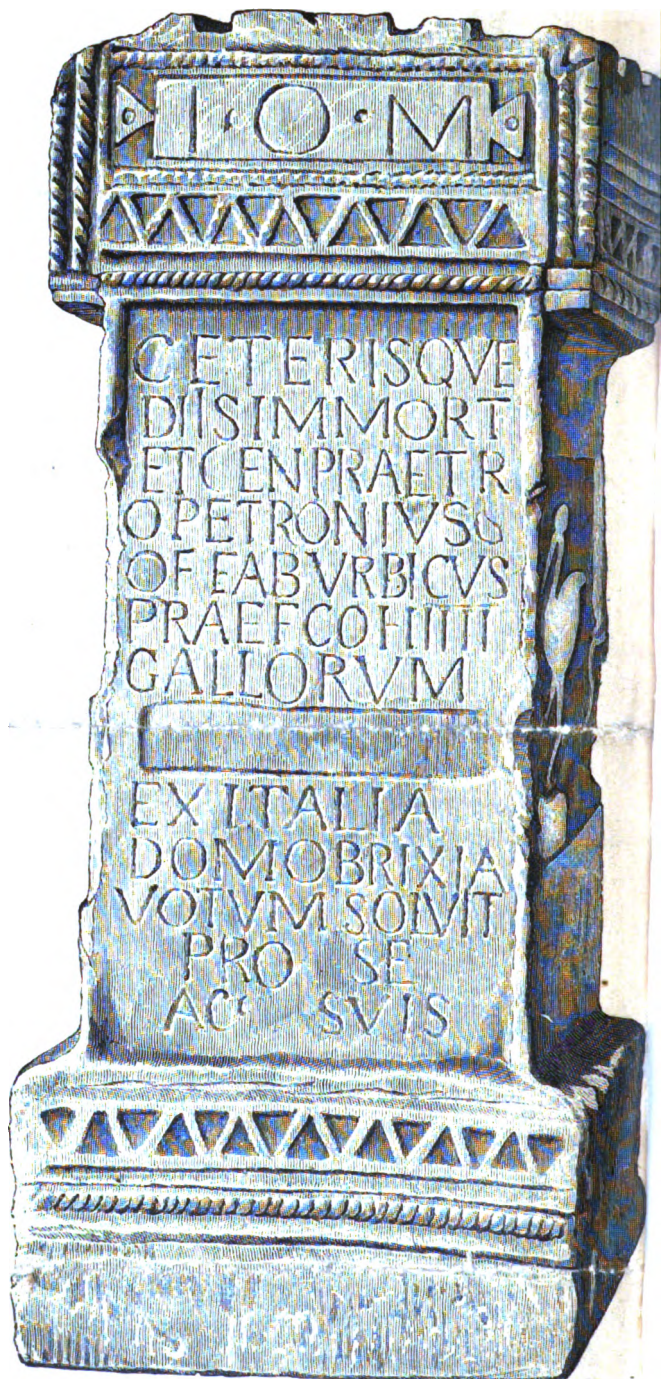 I · O · M
CETERISQVE
DIISIMMORT
ETGENPRAETR
QPETRONIVSQ
QFFABVRBICVS
PRAEFCOHIIII
GALLORVM
EXITALIA
DOMOBRIXIA
VOTVMSOLVIT
PRO SE
AC SVIS